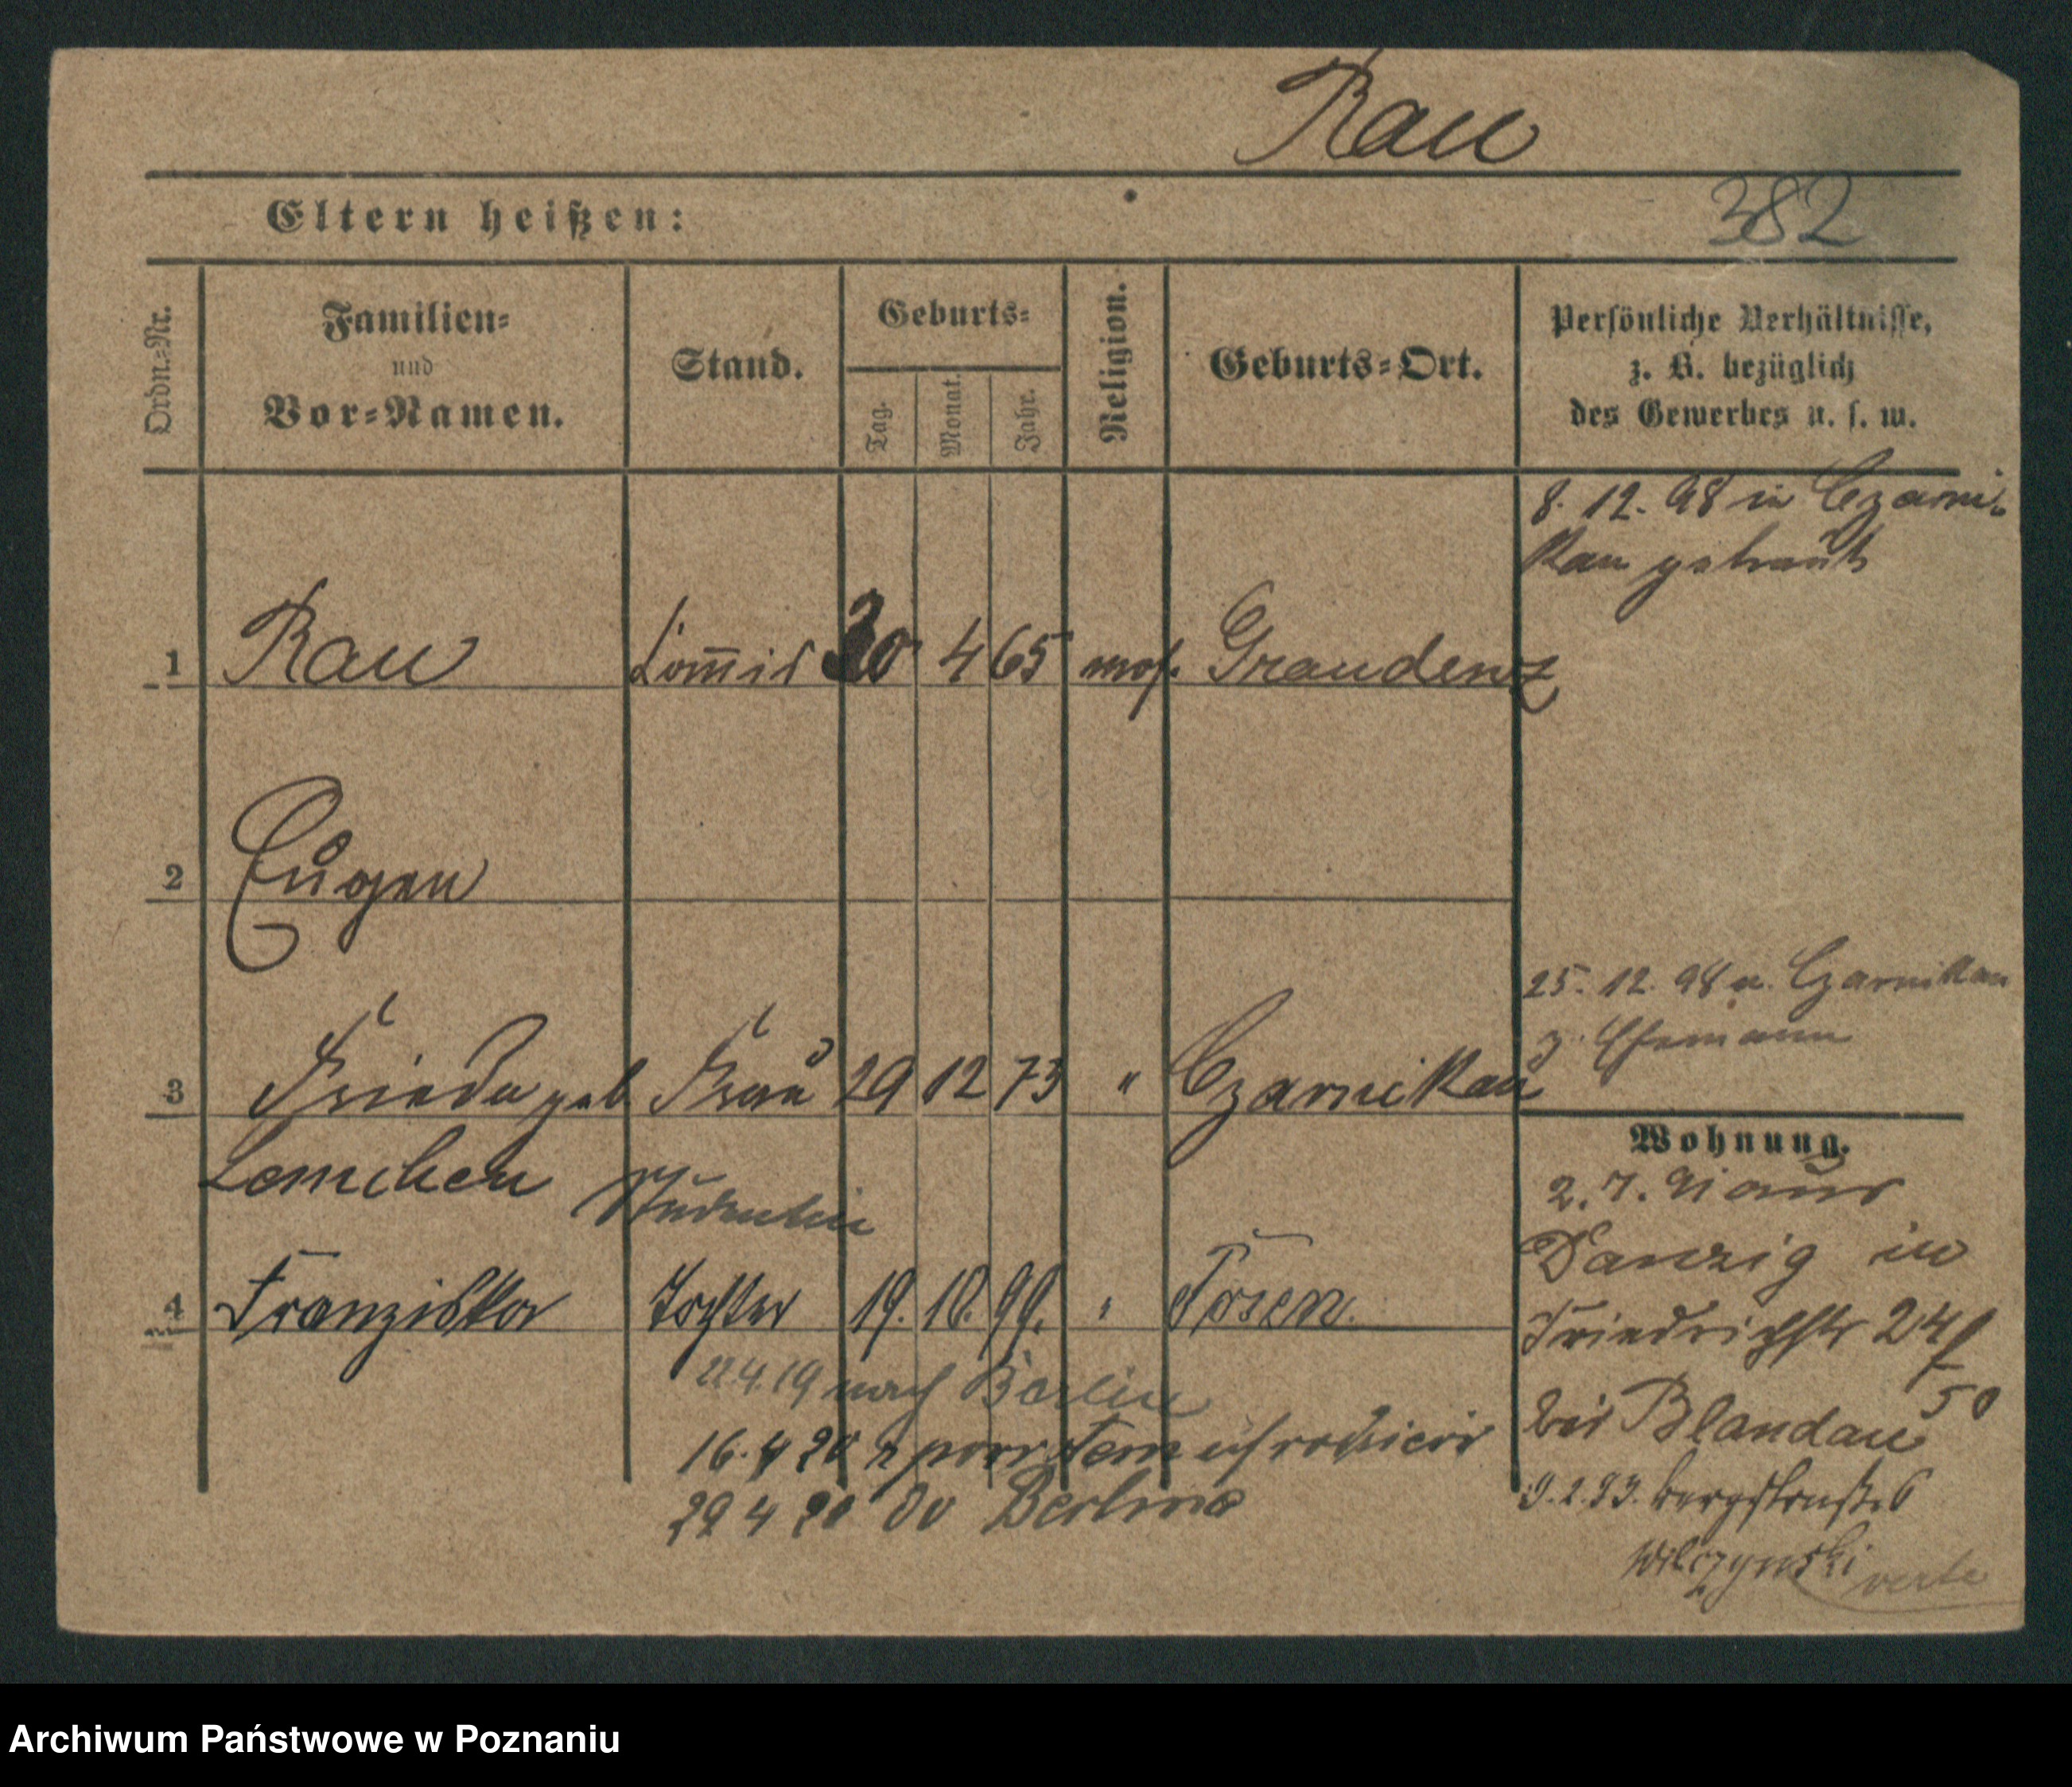 Rau
382
Eltern heißen:
Ordn.-Nr.
Familien-
und
Vor-Namen.
Stand.
Geburts-
Tag.
Monat.
Jahr.
Religion.
Geburts-Ort.
Persönliche Verhältnisse,
z. B. bezüglich
des Gewerbes u. s. w.
8. 12. 98 in Czarni-
kau getraut
1 Rau 30 4 65 mos. Graudenz
2 Eugen
25. 12. 98 v. Czarnikau
z. Ehemann
3 Frieda geb Frau 29 12 73 " Czarnikau
Lemchen Studentin
4 Franziska Tochter 19. 10. 99. " Posen.
4.19 nach Berlin
16. 4 20 z powrotem
29 4 20 do Berlina
Wohnung.
2. 7. 91 aus
Danzig in
Friedrichstr 24/
50
bei Blandau
9. 2. 93. Bergstraße 6
Wilczynski
verte
Archiwum Państwowe w Poznaniu